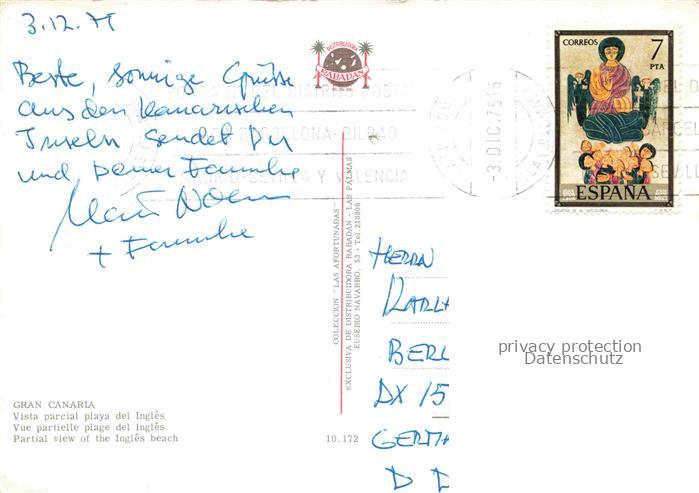 3.12.75
Beste, sonnige Grüsse
aus den kanarischen
Inseln sendet Dir
und Deiner Familie
+ Familie
DISTRIBUIDORA
RABADAN
CORREOS 7
PTA
ESPAÑA
-3.DIC.75
BARCELONA-BILBAO
SEVILLA Y VALENCIA
COLECCION "LAS AFORTUNADAS"
EXCLUSIVA DE DISTRIBUIDORA RABADAN - LAS PALMAS
EUSEBIO NAVARRO, 53 - Tel. 218808
HERRN
KARL
BERL
DX 15
GERM
D D
privacy protection
Datenschutz
GRAN CANARIA
Vista parcial playa del Inglés
Vue partielle plage del Inglés
Partial view of the Inglés beach
10.172